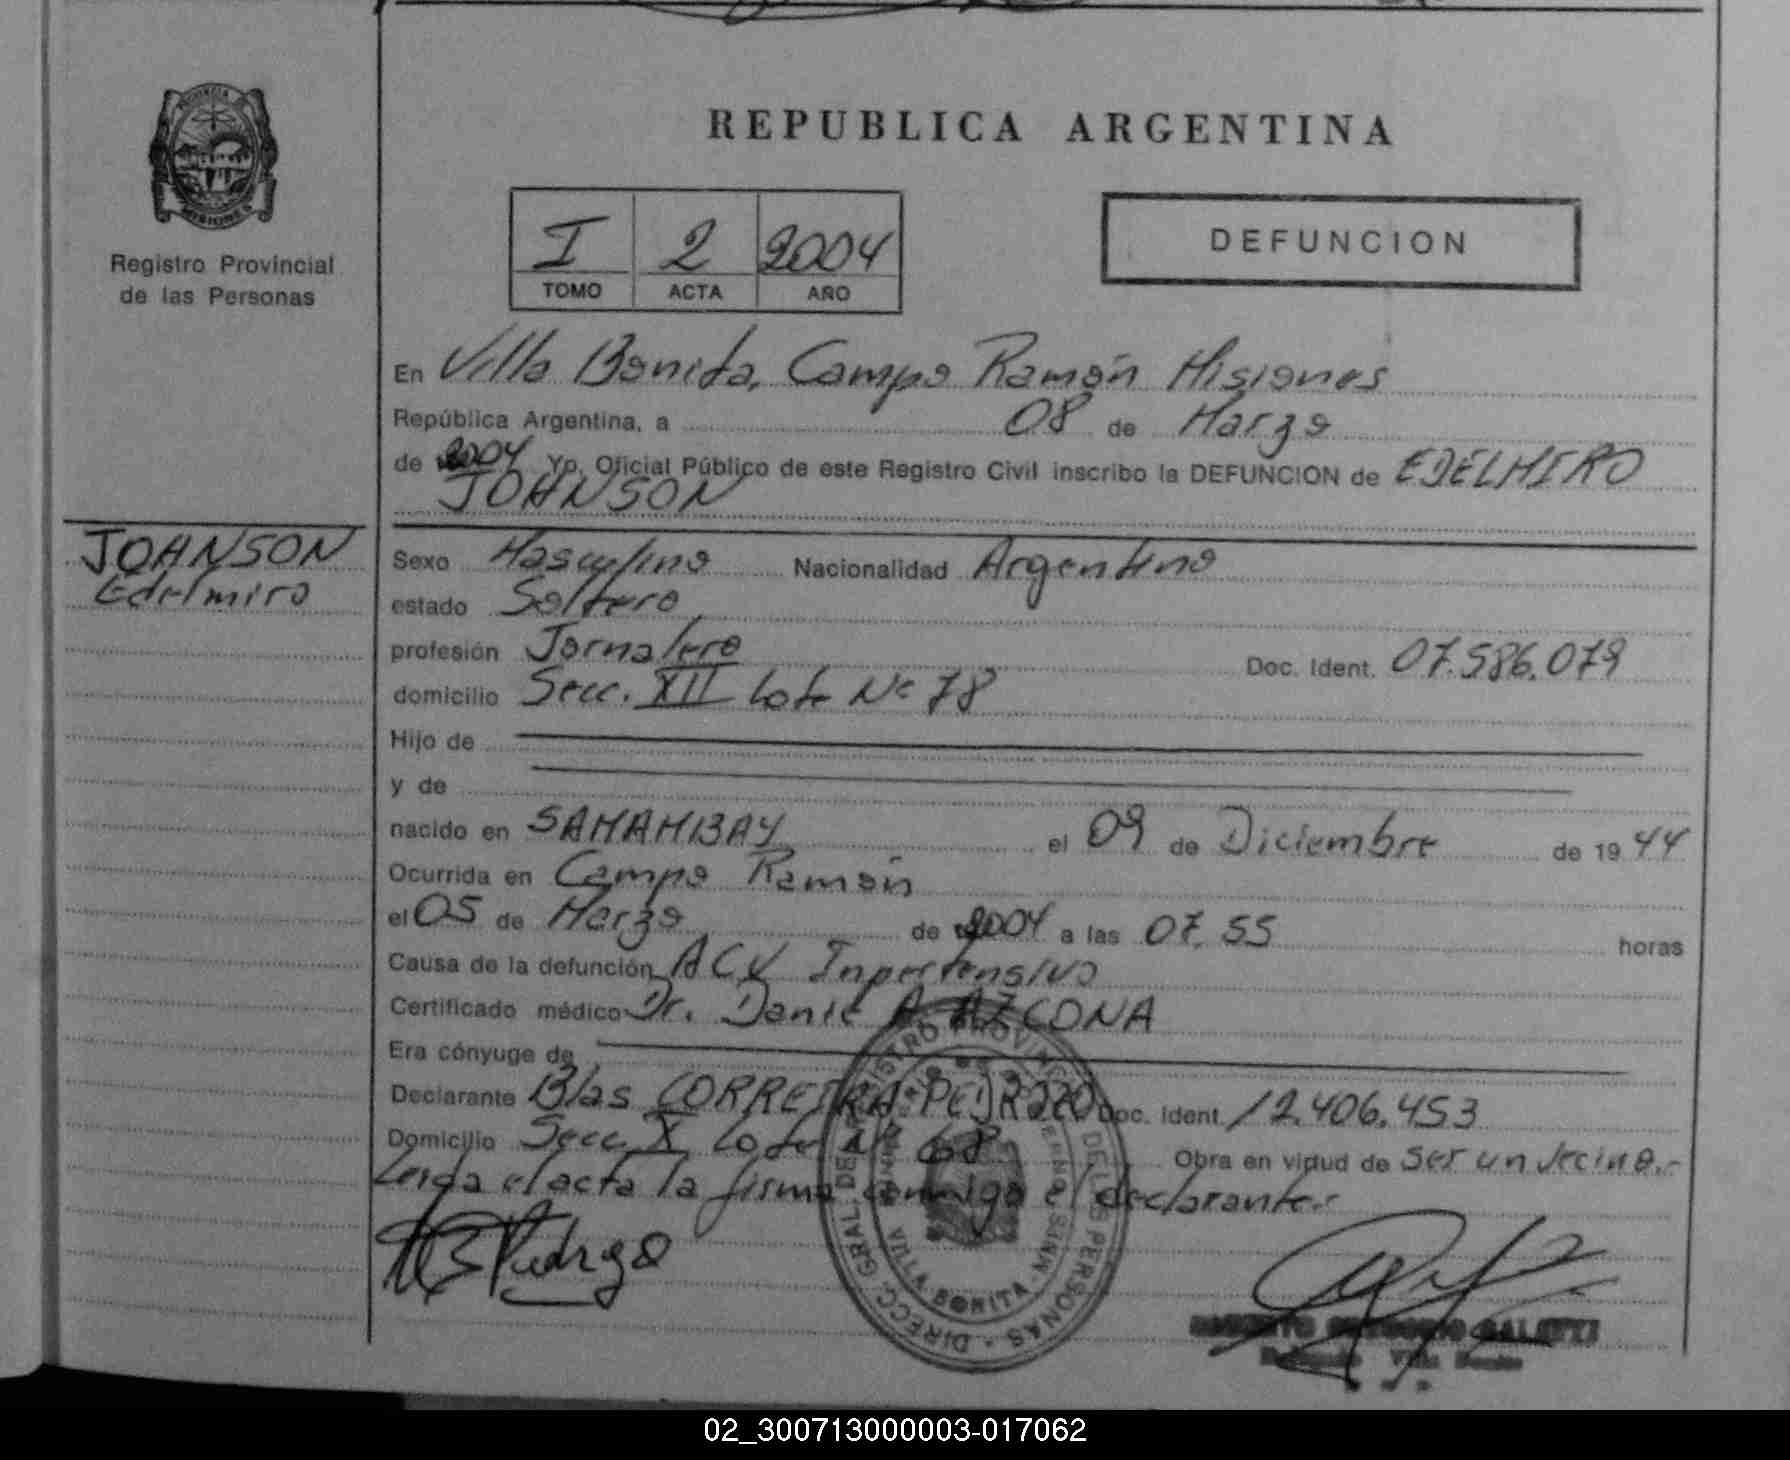 REPUBLICA ARGENTINA
PROVINCIA DE
MISIONES
Registro Provincial
de las Personas
I 2 2004
TOMO ACTA AÑO
DEFUNCION
En Villa Bonita, Campo Ramón Misiones
República Argentina, a 08 de Marzo
de 2004 Yo, Oficial Público de este Registro Civil inscribo la DEFUNCION de EDELMIRO
JOHNSON
JOHNSON
Edelmiro
Sexo Masculino Nacionalidad Argentino
estado Soltero
profesión Jornalero Doc. Ident. 07.586.079
domicilio Secc. XII Lote Nº 78
Hijo de
y de
nacido en SAMAMBAY el 09 de Diciembre de 1944
Ocurrida en Campo Ramón
el 05 de Marzo de 2004 a las 07.55 horas
Causa de la defunción ACV Inpertensivo
Certificado médico Dr. Danie A AZCONA
Era cónyuge de
Declarante Blas CORREIRA PEDROZO Doc. Ident. 12.406.453
Domicilio Secc. X Lote Nº 68 Obra en virtud de ser un vecino.-
Leída el acta la firma conmigo el declarante.-
B Pedrozo
DIRECC. GRAL. DEL REGISTRO PROVINCIAL DE LAS PERSONAS
VILLA BONITA - MNES.
02_300713000003-017062